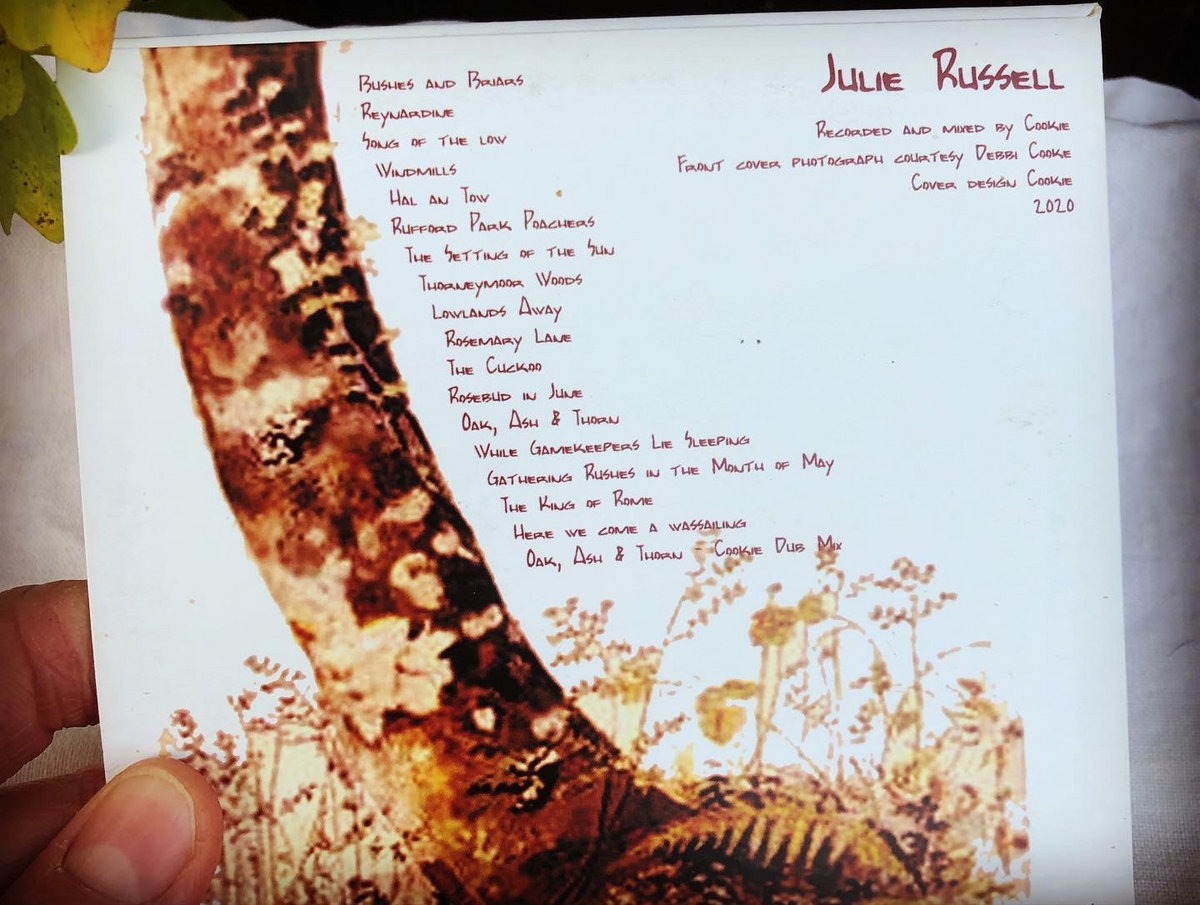 Bushes and Briars
Reynardine
Song of the low
Windmills
Hal an Tow
Rufford Park Poachers
The Setting of the Sun
Thorneymoor Woods
Lowlands Away
Rosemary Lane
The Cuckoo
Rosebud in June
Oak, Ash & Thorn
While Gamekeepers Lie Sleeping
Gathering Rushes in the Month of May
The King of Rome
Here we come a wassailing
Oak, Ash & Thorn - Cookie Dub Mix
Julie Russell
Recorded and mixed by Cookie
Front cover photograph courtesy Debbi Cooke
Cover design Cookie
2020